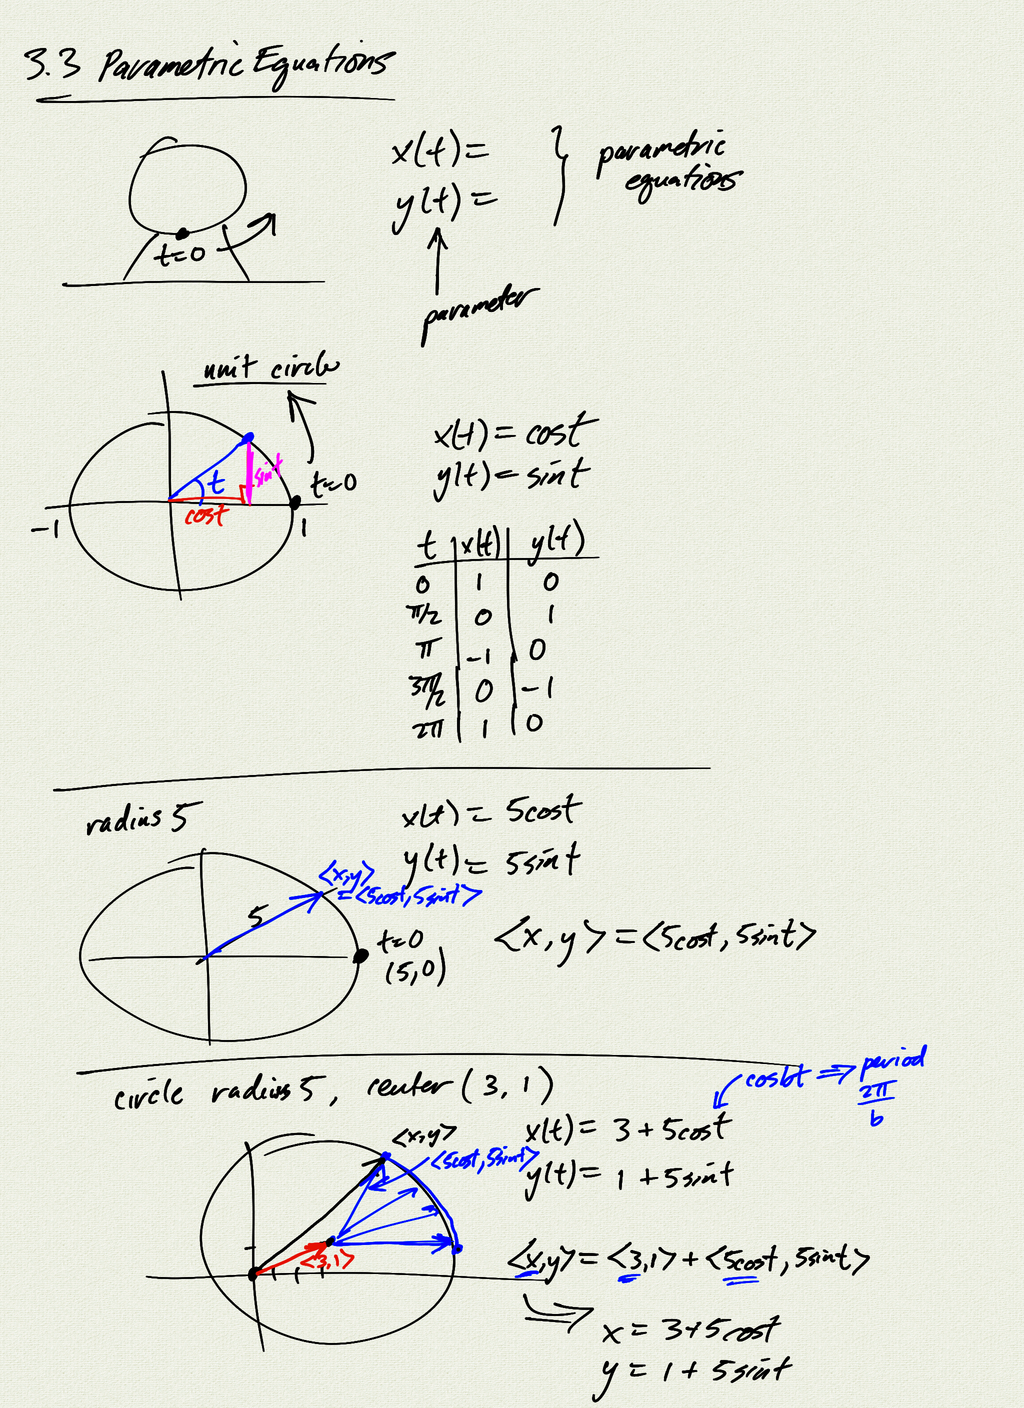 3.3 Parametric Equations
x(t)=
y(t)=
parametric
equations
t=0
parameter
unit circle
t=0
t
sint
cost
-1
1
x(t)=cost
y(t)=sint
t x(t) y(t)
0 1 0
π/2 0 1
π -1 0
3π/2 0 -1
2π 1 0
radius 5
x(t)=5cost
y(t)=5sint
<x,y>
=<5cost,5sint>
5
t=0
(5,0)
<x,y>=<5cost,5sint>
circle radius 5, center (3,1)
cosbt ⇒ period
2π
b
x(t)=3+5cost
y(t)=1+5sint
<x,y>
<5cost,5sint>
<3,1>
<x,y>=<3,1>+<5cost,5sint>
x=3+5cost
y=1+5sint